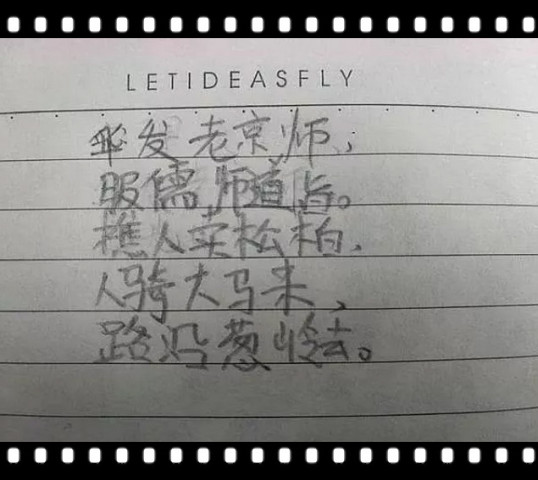 LETIDEASFLY
发老京师，
服儒师道旨。
樵人卖松柏，
人骑大马来，
路沿葱岭去。